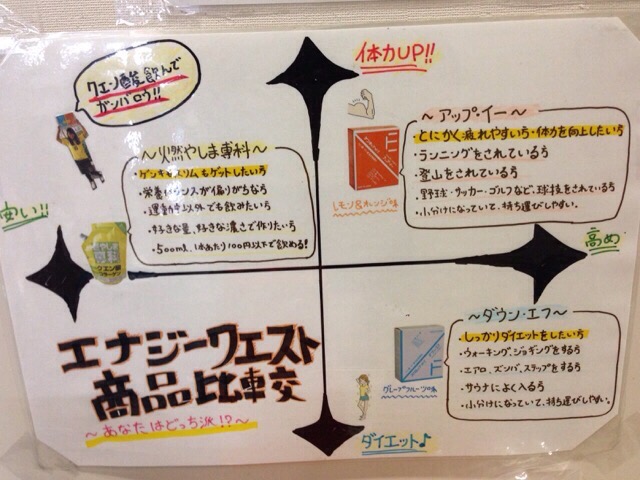 体力UP!!
クエン酸飲んで
ガンバロウ!!
～アップ・イー～
・とにかく疲れやすい方・体力を向上したい方
・ランニングをされている方
・登山をされている方
・野球・サッカー・ゴルフなど、球技をされている方
・小分けになっていて、持ち運びしやすい。
レモン&オレンジ味
～火燃やしま専科～
・ゲンキもスリムもゲットしたい方
・栄養バランスが偏りがちな方
・運動時以外でも飲みたい方
・好きな量、好きな濃さで作りたい方
・500ml、1本あたり100円以下で飲める!
安い!!
高め
クエン酸
エナジークエスト
商品比較
～あなたはどっち派!?～
～ダウン・エフ～
・しっかりダイエットをしたい方
・ウォーキング、ジョギングをする方
・エアロ、ズンバ、ステップをする方
・サウナによく入る方
・小分けになっていて、持ち運びしやすい。
グレープフルーツ味
ダイエット♪